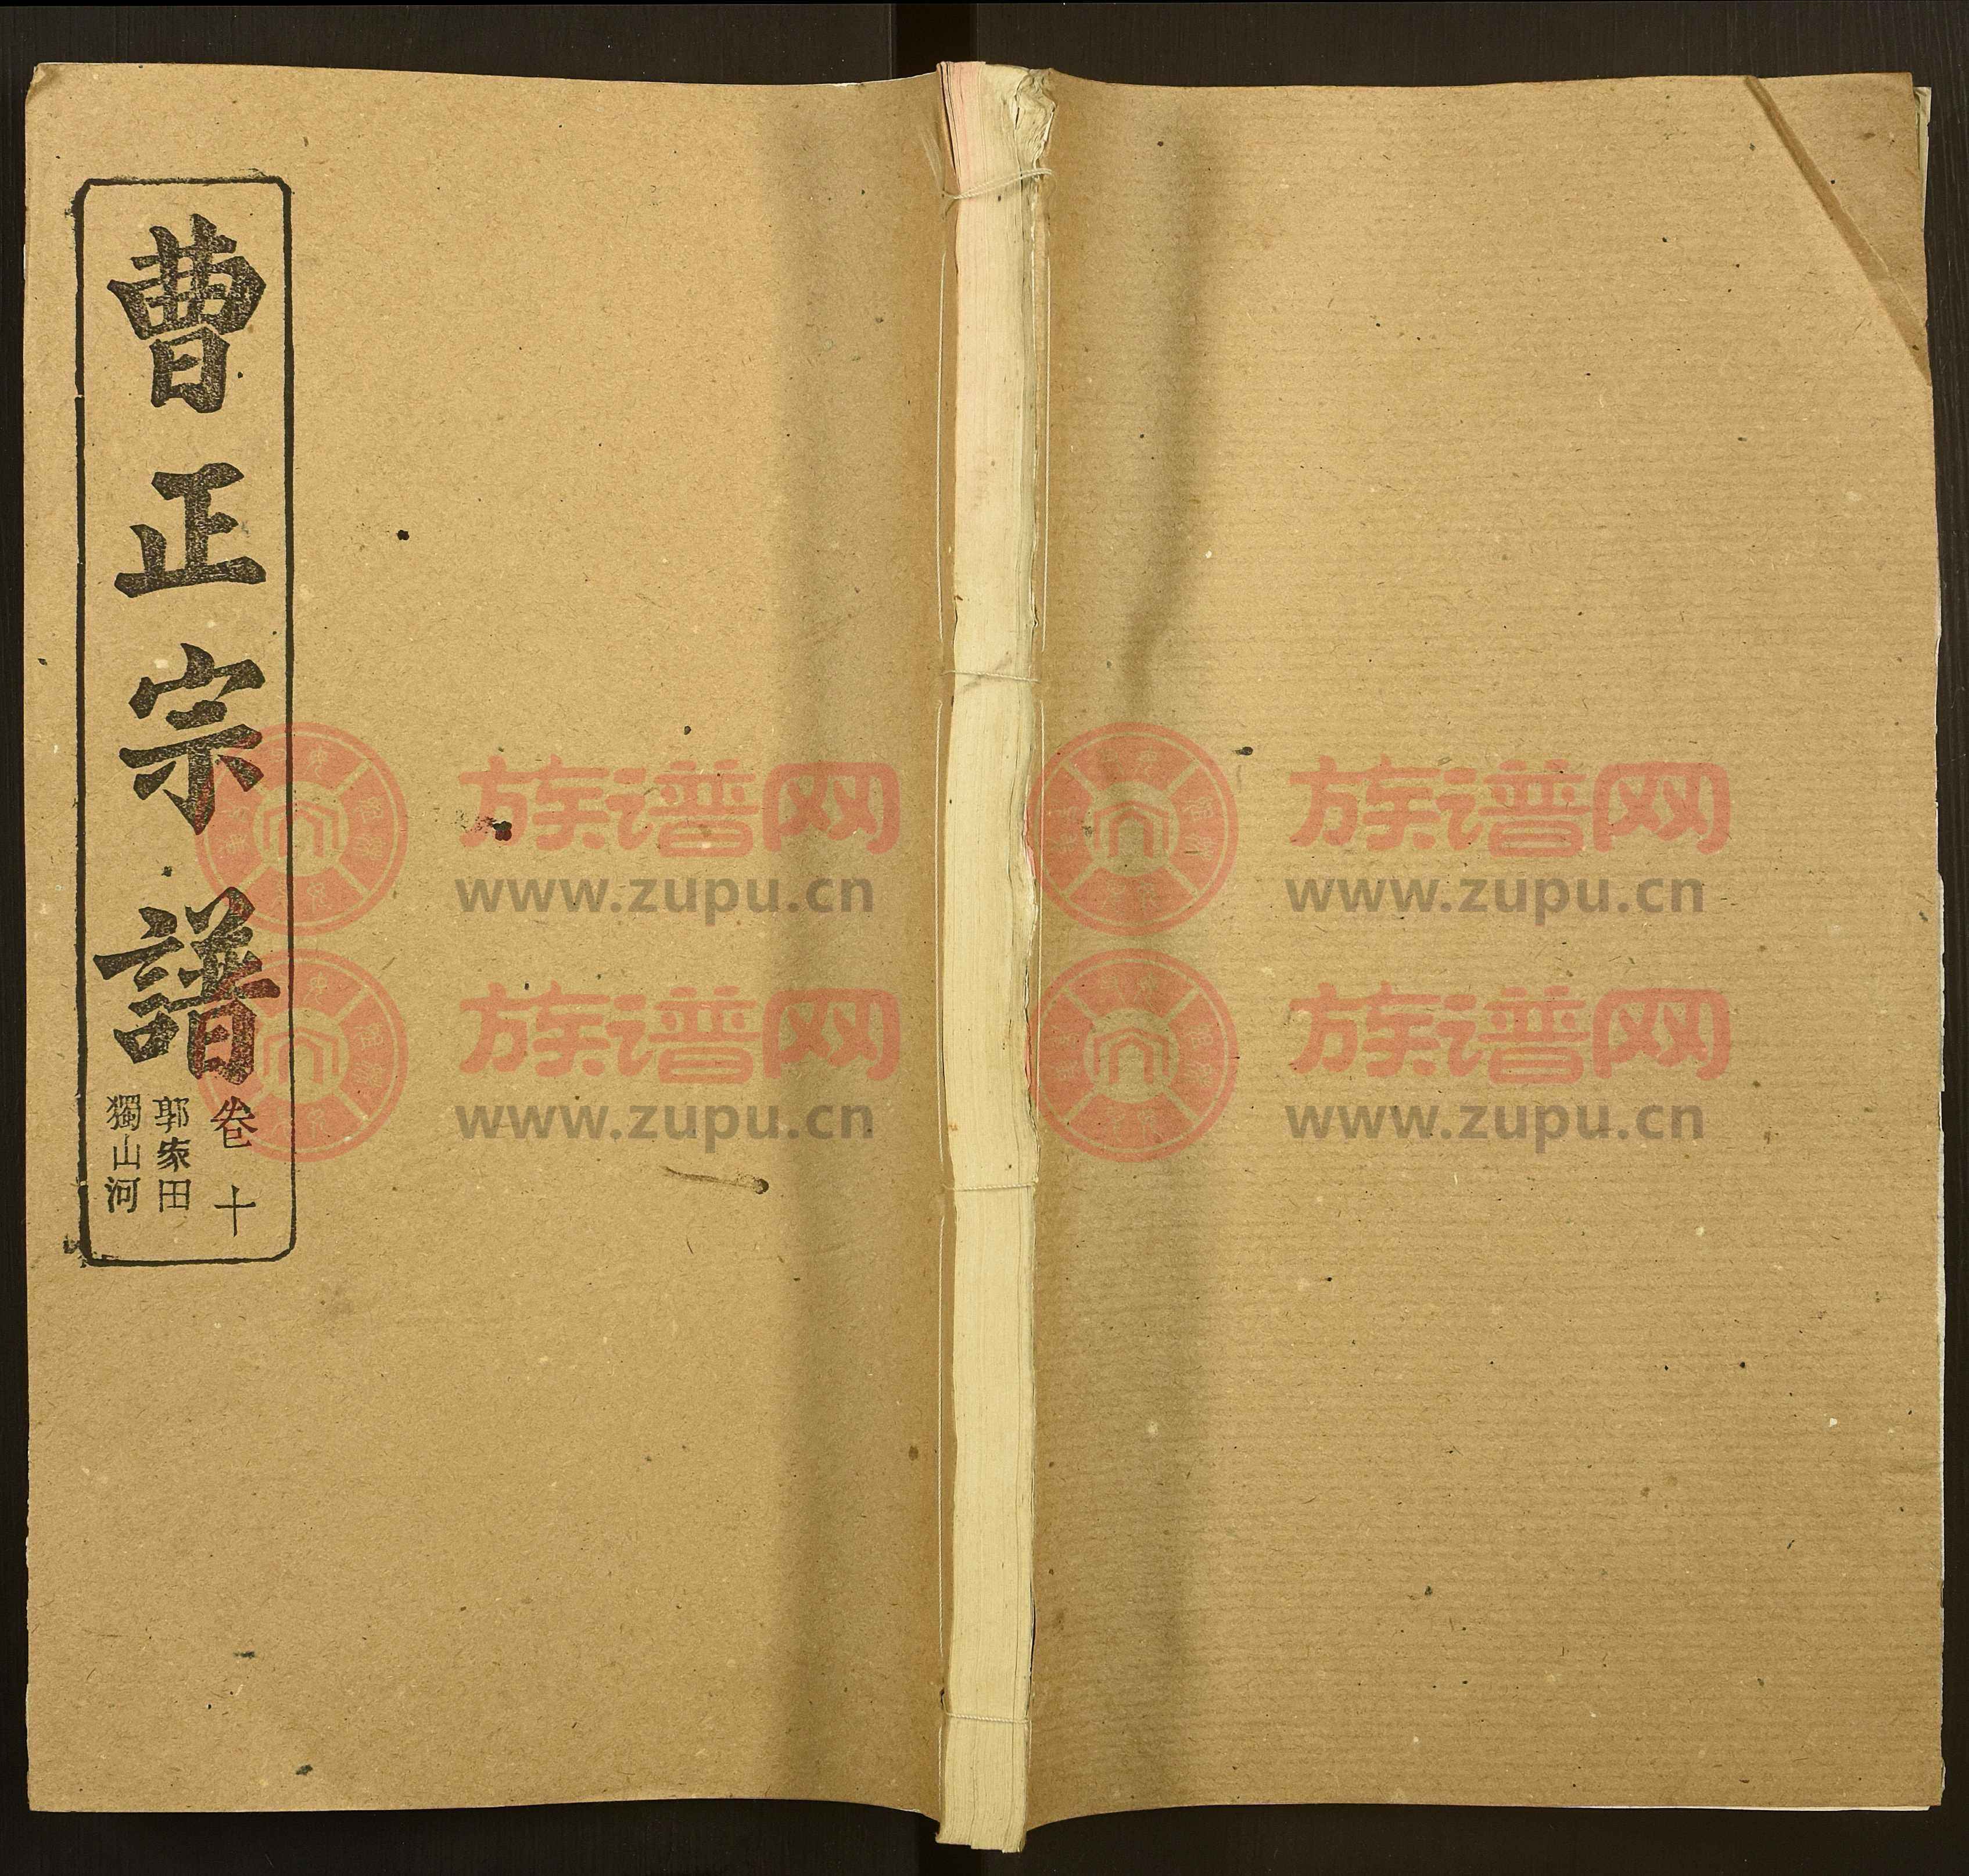 曹正宗譜
卷十
郭家田
獨山河
族谱网
www.zupu.cn
族谱网
www.zupu.cn
族谱网
www.zupu.cn
族谱网
www.zupu.cn